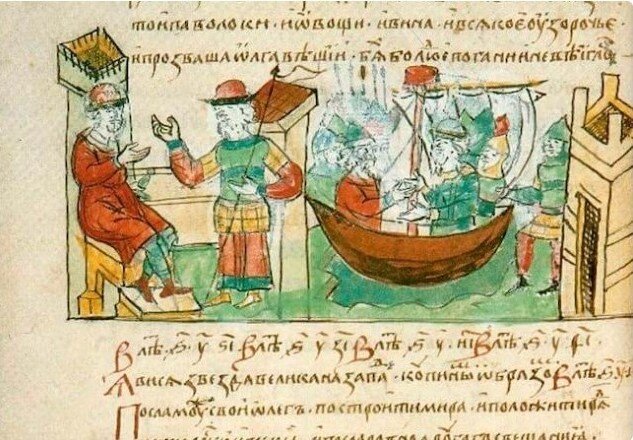 тои паволоки · и ѡвощи · и вина · и всѧкое оузорочье ·
и прозваша ѡлга вѣщии · бѧ бо люⷣе погани и невѣигло
В лѣⷮ · ѕ · у҃ ѕі В лѣⷮ ѕ у҃ зі В лѣⷮ · ѕ · у҃ · иі В лѣⷮ · ѕ · у҃
Ависѧ звезда велика на запаⷣ · копииныⷨ ѡбразоⷨ В лѣⷮ · ѕ · у҃
Посла моуⷤ свои ѡлегъ · построити мира · и положити рѧ